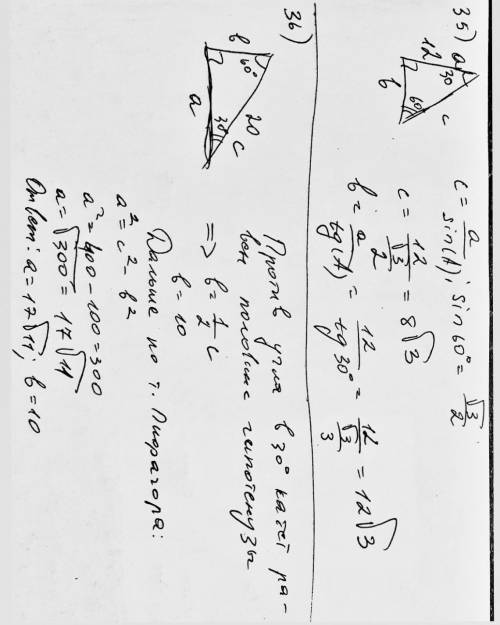 35)
a
12
30
60°
b
c
c = a / sin(A); sin 60° = √3/2
c = 12 / (√3/2) = 8√3
b = a / tg(A) = 12 / tg 30° = 12 / (√3/3) = 12√3
36)
в
60°
20
30
a
c
Против угла в 30° катет ра-
вен половине гипотенузы
=> b = 1/2 c
b = 10
Дальше по т. Пифагора:
a² = c² - b²
a² = 400 - 100 = 300
a = √300 = 17√11
Ответ: a = 17√11; b = 10